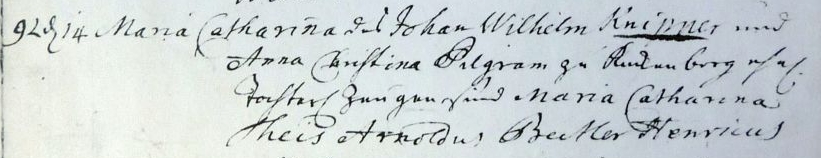 14 Maria Catharina des Johan Wilhelm Knipper und
Anna Christina Pilgram zu Rickenberg
Tochter Zeugen sind Maria Catharina
Theis Arnoldus Becker Henricus